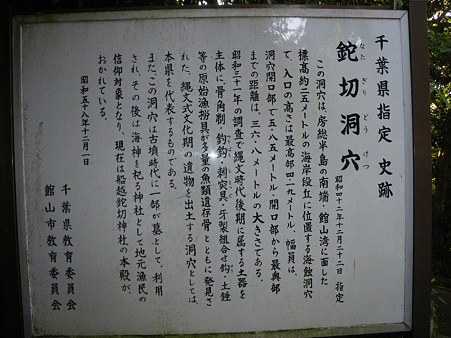 千葉県指定 史跡
なた ぎり どう けつ
鉈切洞穴
昭和四十二年十二月二十二日 指定
この洞穴は、房総半島の南端・館山湾に面した
標高約二五メートルの海岸段丘に位置する海蝕洞穴
で、入口の高さは最高部四・一九メートル、幅員は、
洞穴開口部で五・八五メートル、開口部から最奥部
までの距離は、三六・八メートルの大きさである。
昭和三十一年の調査で縄文時代後期に属する土器を
主体に骨角製、釣鈎、刺突具・牙製組合せ鈎、土錘
等の原始漁撈具が多量の魚類遺存骨とともに発見さ
れた。縄文式文化期の遺物を出土する洞穴としては、
本県を代表するものである。
また、この洞穴は古墳時代に一部が墓として、利用
され、その後は海神を祀る神社として地元漁民の
信仰対象となり、現在は船越鉈切神社の本殿が、
おかれている。
昭和五十八年十二月一日
千葉県教育委員会
館山市教育委員会